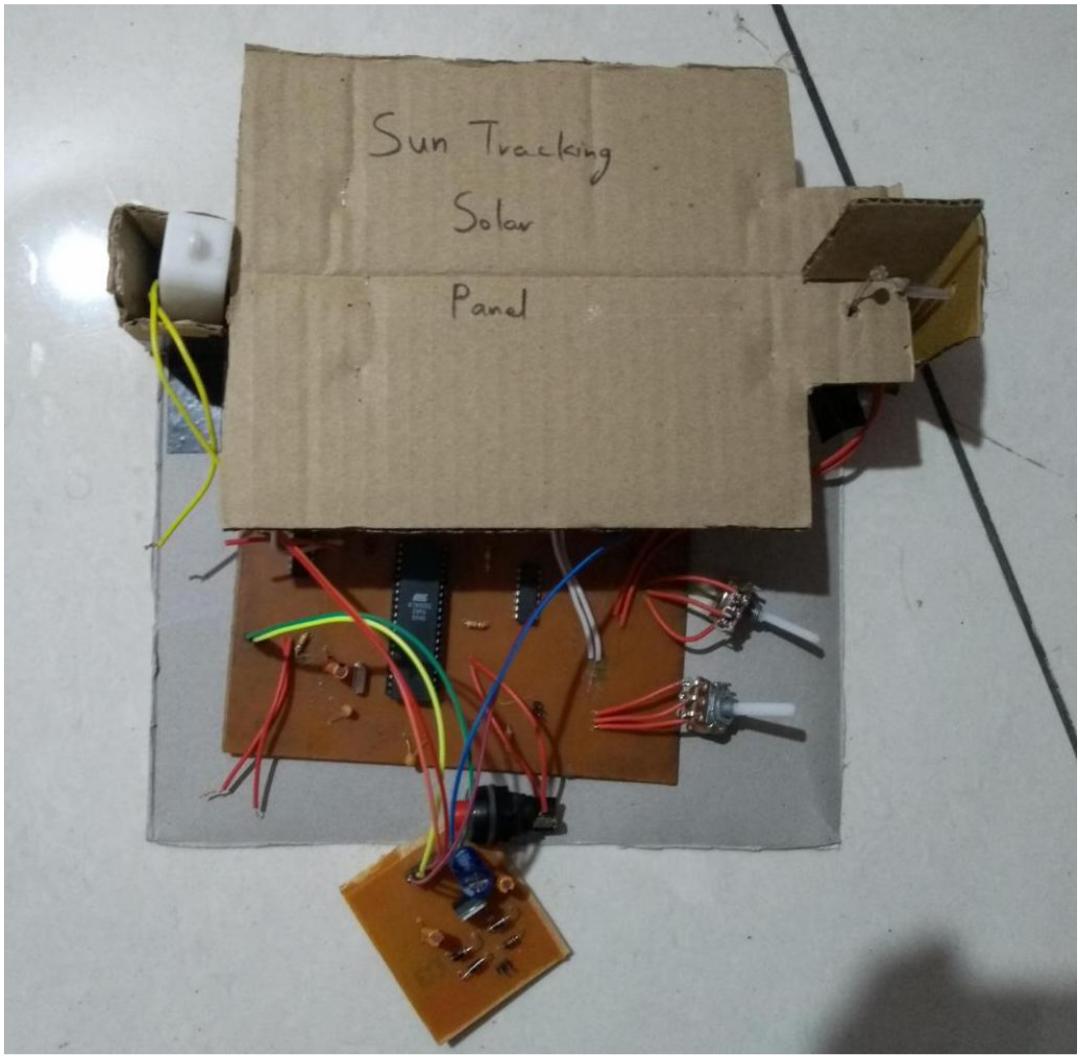 Sun Tracking
Solar
Panel